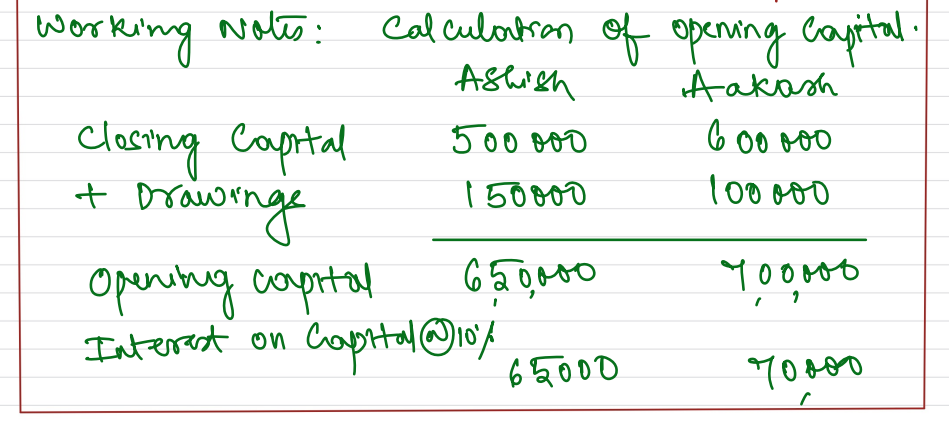 Working Notes: Calculation of opening Capital.
Ashish Aakash
Closing Capital 500000 600000
+ Drawings 150000 100000
Opening capital 650,000 700,000
Interest on Capital @ 10%
65000 70,000